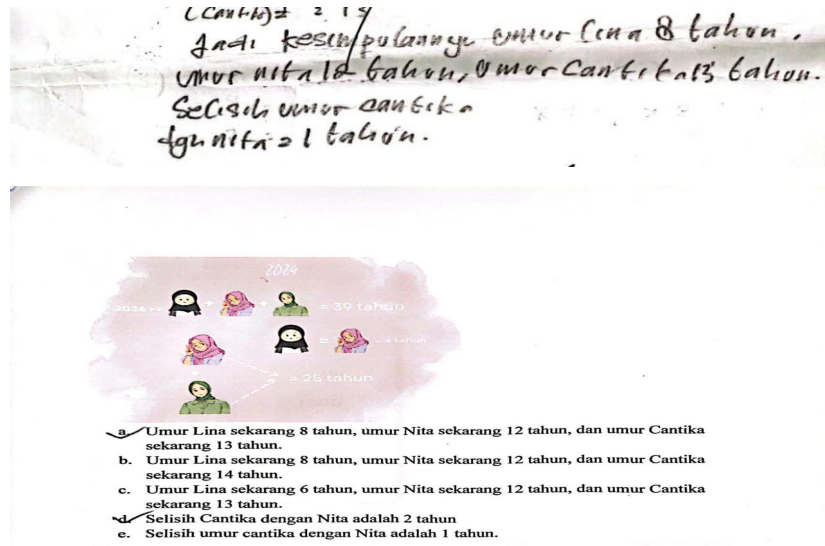 (Cantika)=
Jadi kesimpulannya umur Lina 8 tahun,
umur nita 12 tahun, umur Cantika 13 tahun.
Selisih umur cantika
dgn nita = 1 tahun.
2024
2026
+ + = 39 tahun
= - 4 tahun
+
= 25 tahun
a. Umur Lina sekarang 8 tahun, umur Nita sekarang 12 tahun, dan umur Cantika
sekarang 13 tahun.
b. Umur Lina sekarang 8 tahun, umur Nita sekarang 12 tahun, dan umur Cantika
sekarang 14 tahun.
c. Umur Lina sekarang 6 tahun, umur Nita sekarang 12 tahun, dan umur Cantika
sekarang 13 tahun.
d. Selisih Cantika dengan Nita adalah 2 tahun
e. Selisih umur cantika dengan Nita adalah 1 tahun.